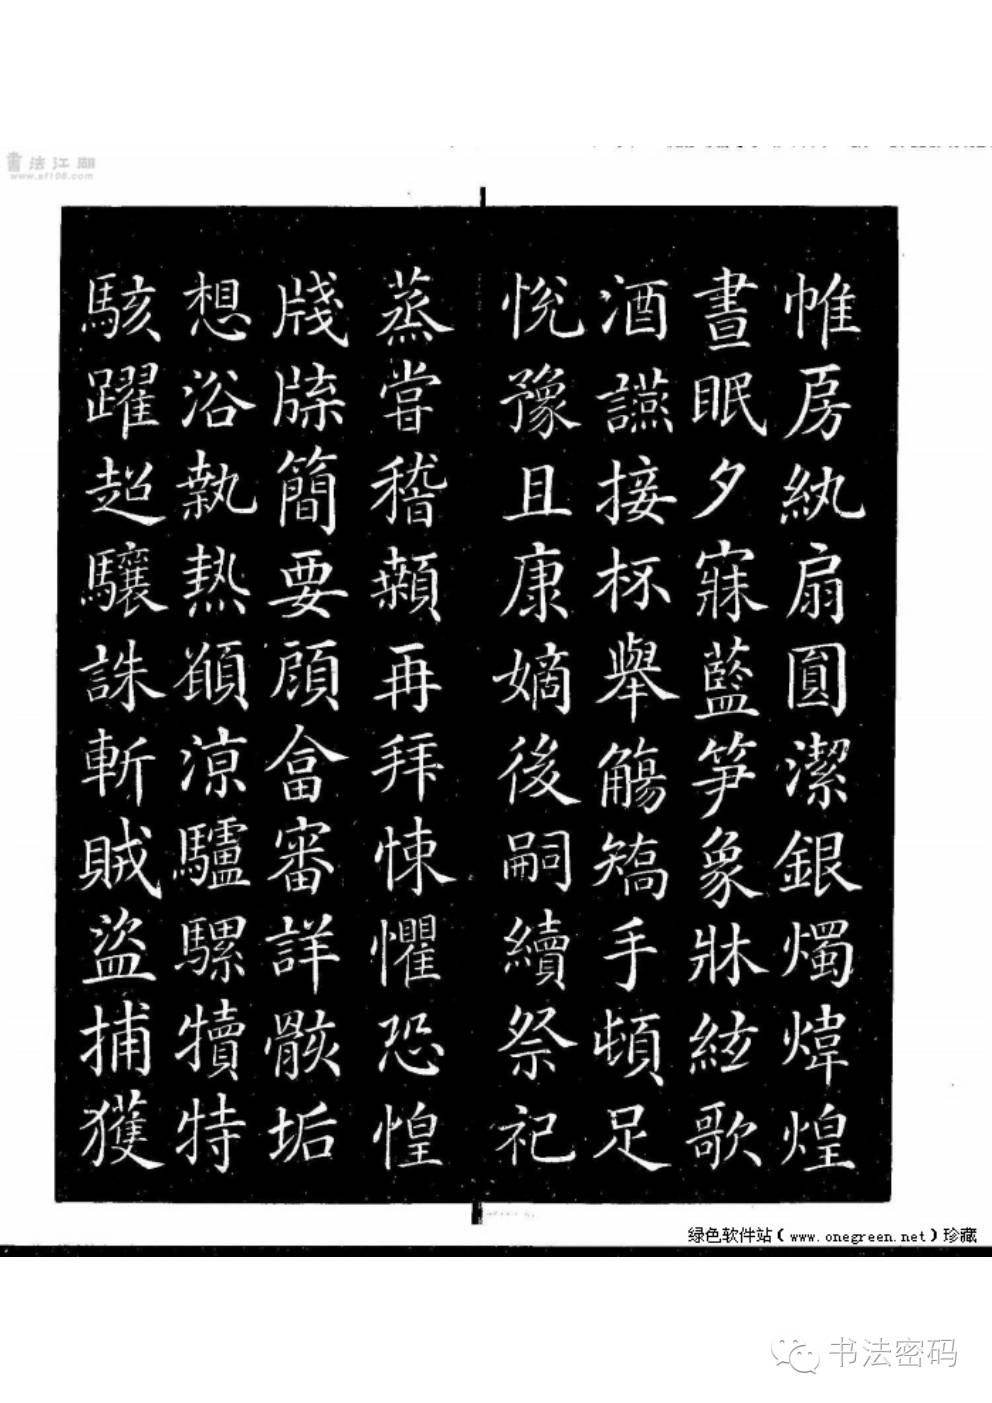 書法江湖
www.sf108.com
帷房紈扇圓潔銀燭煒煌
晝眠夕寐藍笋象牀絃歌
酒讌接杯舉觴矯手頓足
悅豫且康嫡後嗣續祭祀
蒸嘗稽顙再拜悚懼恐惶
牋牒簡要顧畣審詳骸垢
想浴執熱願涼驢騾犢特
駭躍超驤誅斬賊盜捕獲
绿色软件站(www.onegreen.net)珍藏
书法密码